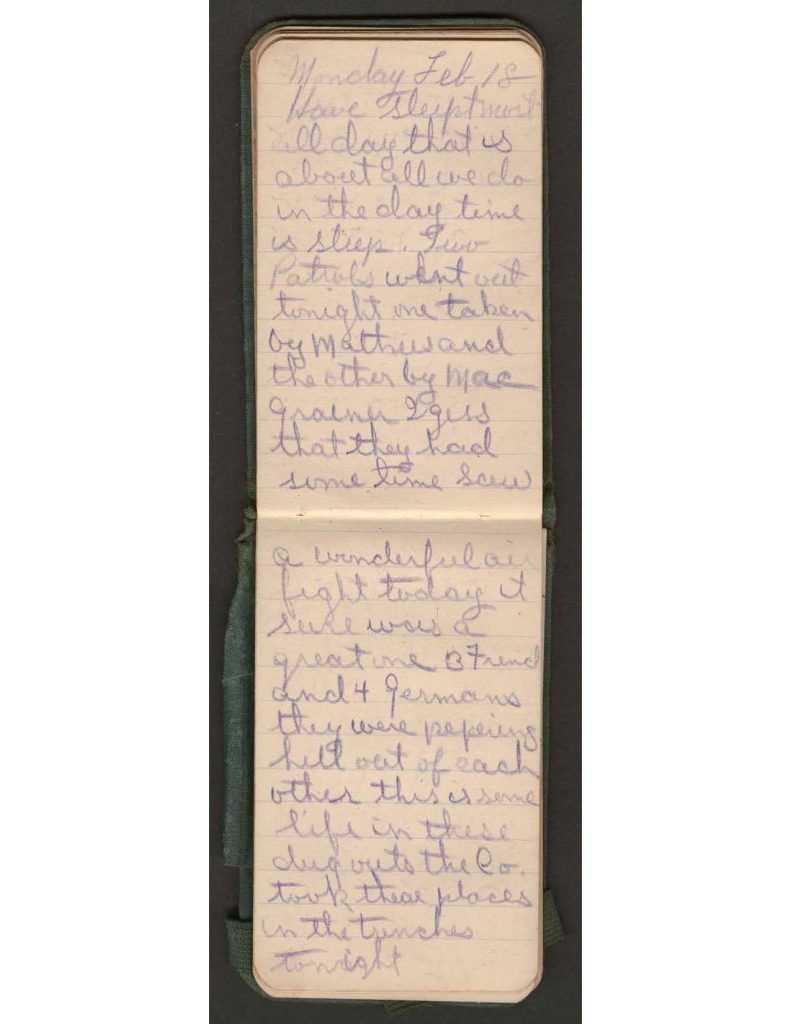 Monday Feb 18
Have sleipt most
all day that is
about all we do
in the day time
is sleip. Two
Patrols went out
tonight one taken
by Mathews and
the other by Mac
Grainer I gess
that they had
some time Seew
a wonderful air
fight today it
sure was a
great one 3 French
and 4 Germans
they were pepering
hell out of each
other this is some
life in these
dug outs the Co.
took theae places
in the trenches
tonight